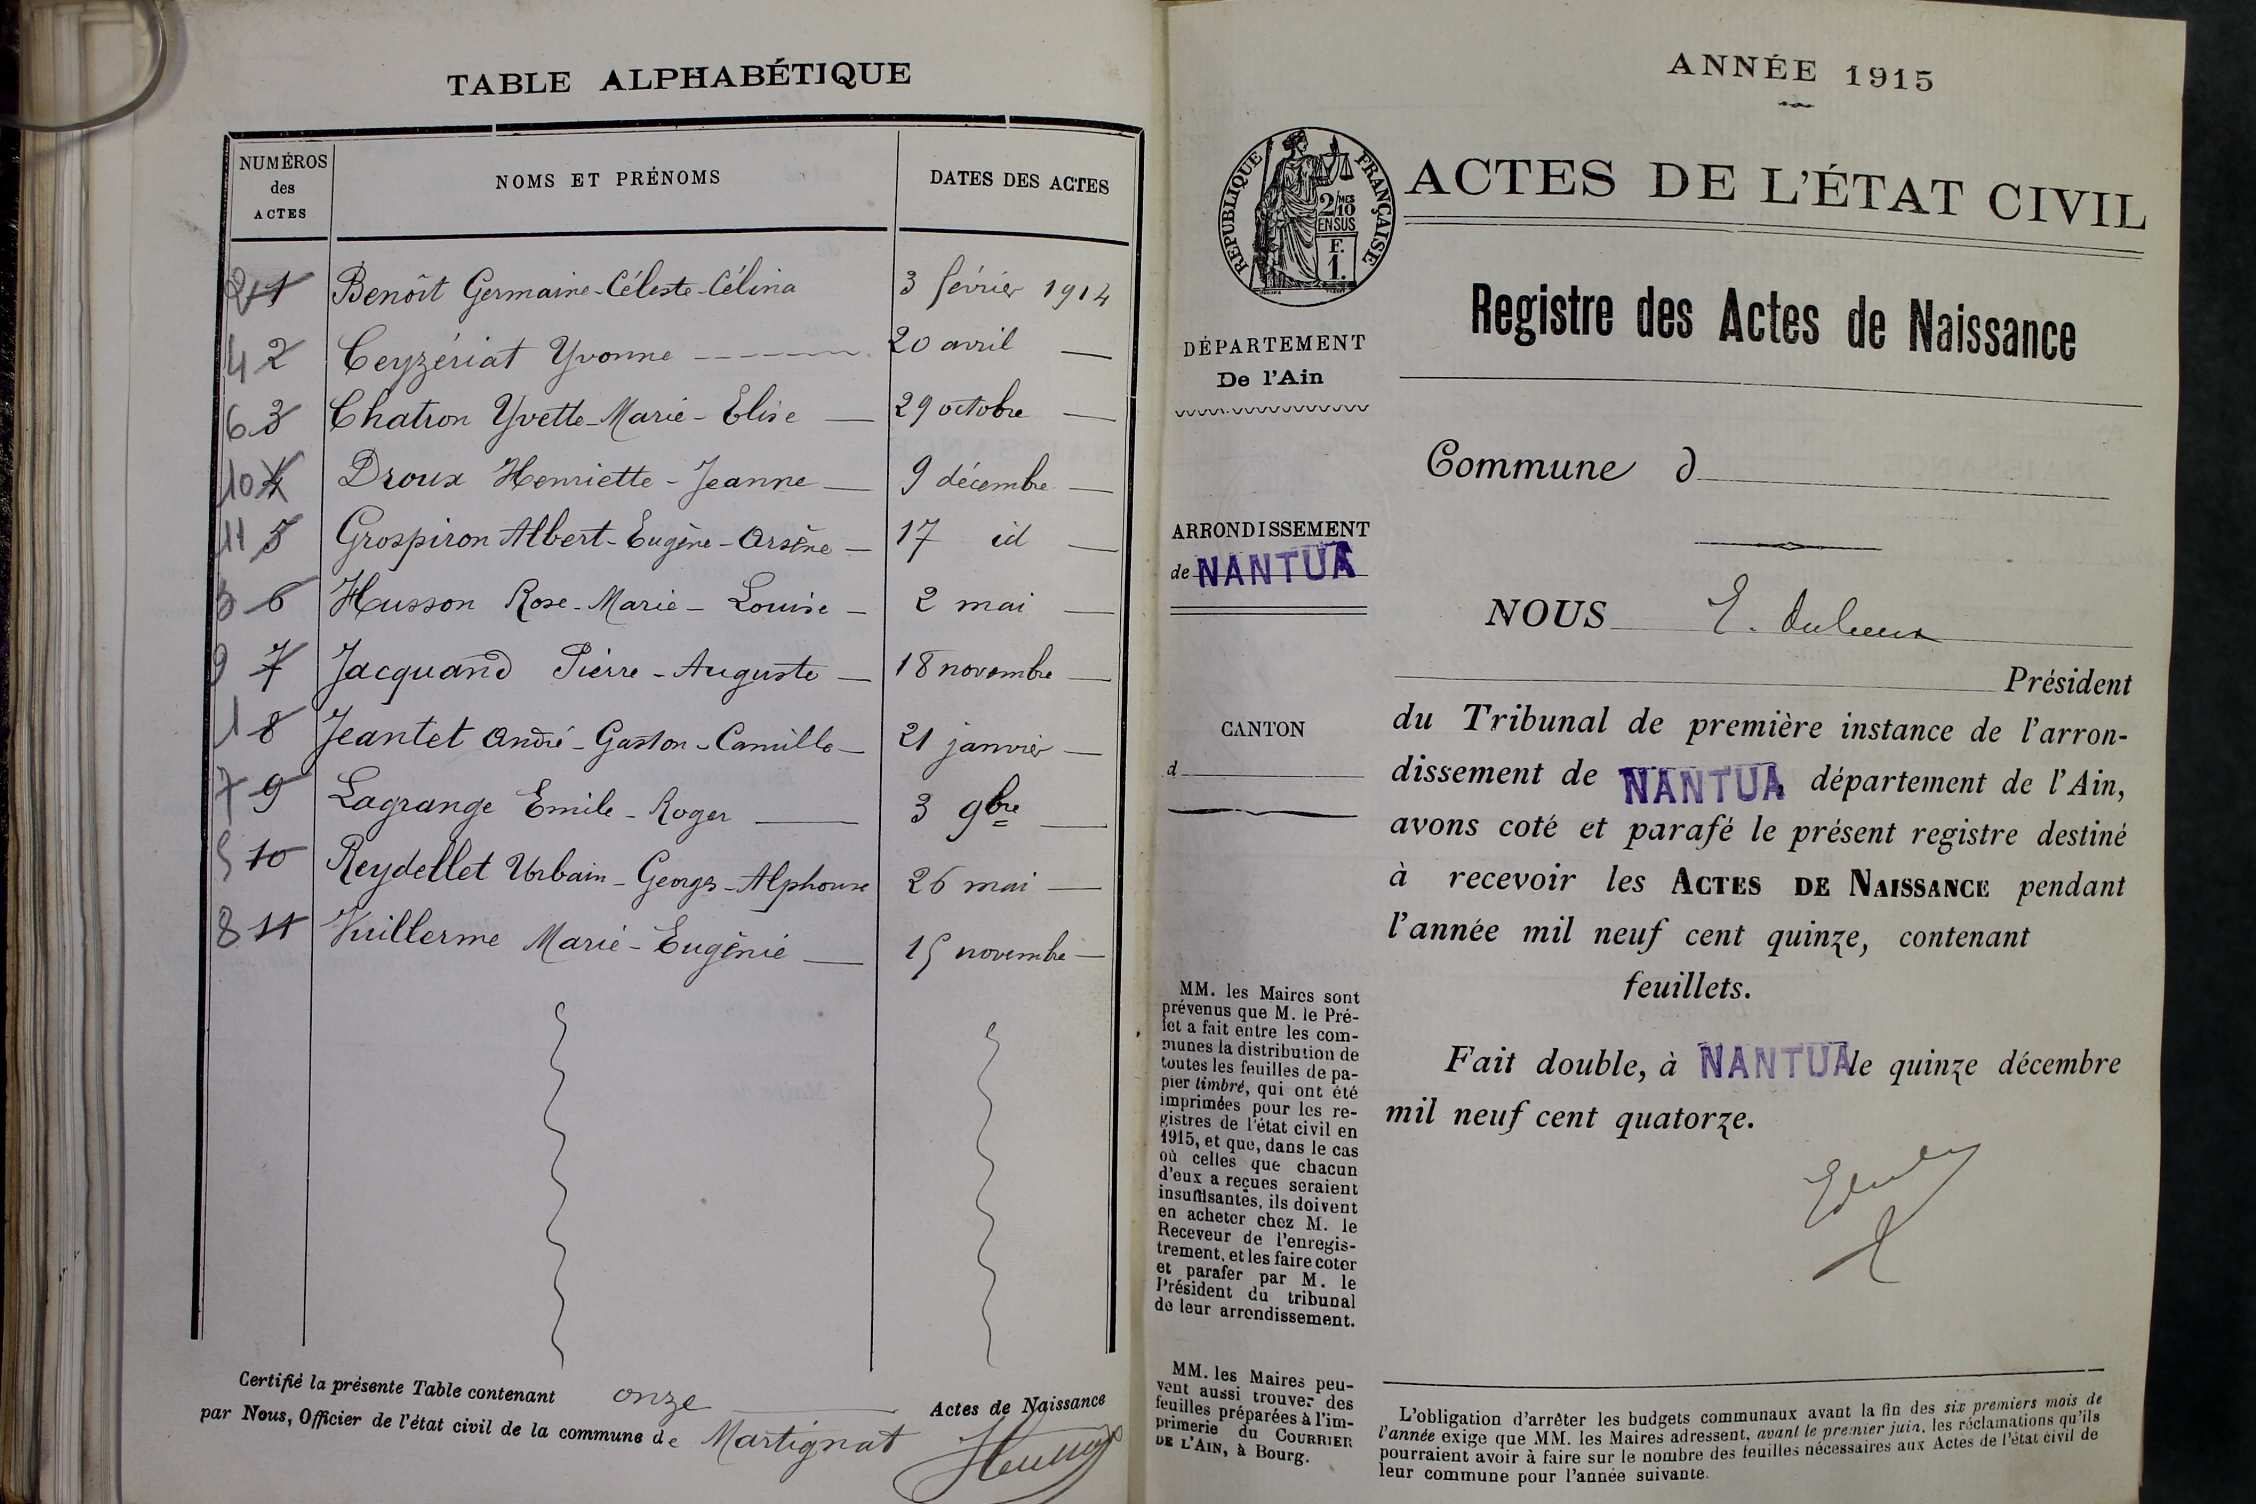 TABLE ALPHABÉTIQUE
NUMÉROS
des
ACTES
NOMS ET PRÉNOMS
DATES DES ACTES
2 1 Benoît Germaine-Céleste-Célina 3 février 1914
4 2 Ceyzériat Yvonne 20 avril —
6 3 Chatron Yvette-Marie-Elise — 29 octobre —
10 4 Droux Henriette-Jeanne — 9 décembre —
11 5 Grospiron Albert-Eugène-Arsène — 17 id —
3 6 Husson Rose-Marie-Louise — 2 mai —
9 7 Jacquand Pierre-Auguste — 18 novembre —
1 8 Jeantet André-Gaston-Camille — 21 janvier —
7 9 Lagrange Emile-Roger — 3 9bre —
5 10 Reydellet Urbain-Georges-Alphonse 26 mai —
8 11 Vuillerme Marie-Eugénie — 15 novembre —
Certifié la présente Table contenant onze — Actes de Naissance
par Nous, Officier de l'état civil de la commune de Martignat
ANNÉE 1915
RÉPUBLIQUE FRANÇAISE
2/10 MES
EN SUS
F.
1.
ACTES DE L'ÉTAT CIVIL
Registre des Actes de Naissance
DÉPARTEMENT
De l'Ain
ARRONDISSEMENT
de NANTUA
CANTON
d
MM. les Maires sont
prévenus que M. le Pré-
fet a fait entre les com-
munes la distribution de
toutes les feuilles de pa-
pier timbré, qui ont été
imprimées pour les re-
gistres de l'état civil en
1915, et que, dans le cas
où celles que chacun
d'eux a reçues seraient
insuffisantes, ils doivent
en acheter chez M. le
Receveur de l'enregis-
trement, et les faire coter
et parafer par M. le
Président du tribunal
de leur arrondissement.
MM. les Maires peu-
vent aussi trouver des
feuilles préparées à l'im-
primerie du COURRIER
DE L'AIN, à Bourg.
Commune d
NOUS E.
Président
du Tribunal de première instance de l'arron-
dissement de NANTUA département de l'Ain,
avons coté et parafé le présent registre destiné
à recevoir les ACTES DE NAISSANCE pendant
l'année mil neuf cent quinze, contenant
feuillets.
Fait double, à NANTUA le quinze décembre
mil neuf cent quatorze.
L'obligation d'arrêter les budgets communaux avant la fin des six premiers mois de
l'année exige que MM. les Maires adressent, avant le premier juin, les réclamations qu'ils
pourraient avoir à faire sur le nombre des feuilles nécessaires aux Actes de l'état civil de
leur commune pour l'année suivante.